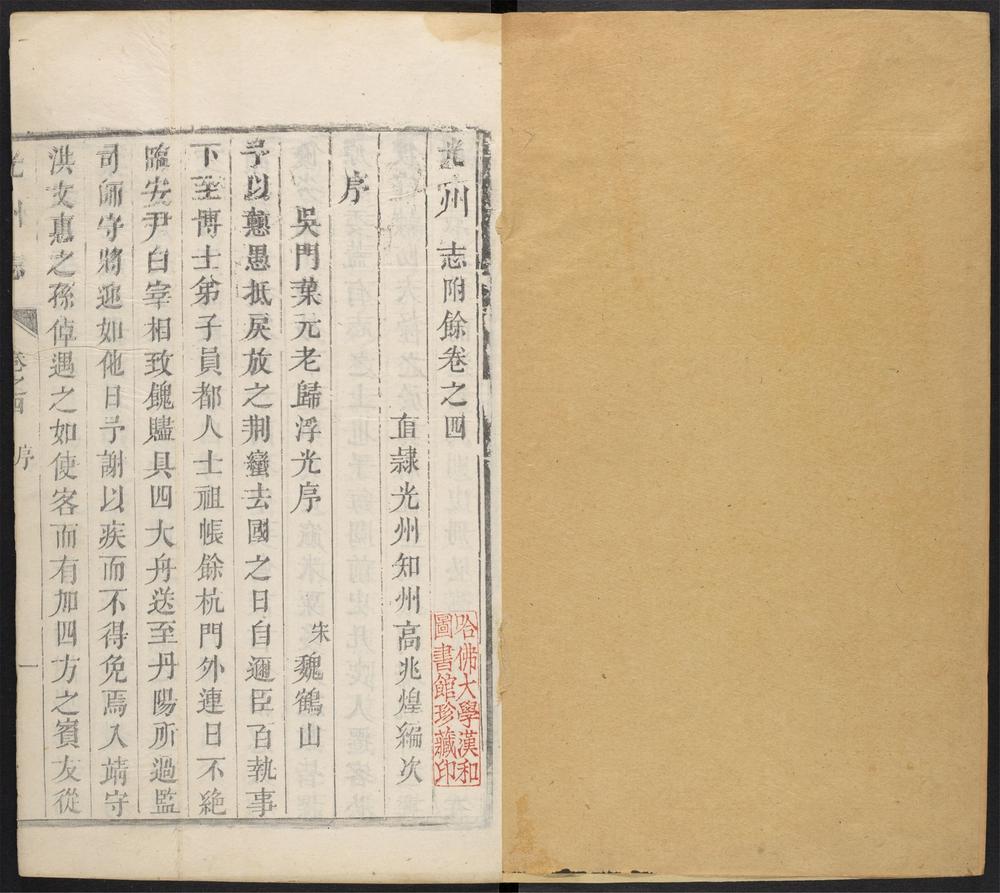 光州志附餘卷之四
直隷光州知州高兆煌編次
序
吳門葉元老歸浮光序
宋魏鶴山
予以憃愚抵戾放之荆蠻去國之日自邇臣百執事
下至博士弟子員都人士祖帳餘杭門外連日不絶
臨安尹白宰相致餽贐具四大舟送至丹陽所過監
司師守將迎如他日予謝以疾而不得免焉入靖守
洪文惠之孫倬遇之如使客而有加四方之賓友從
光州志
卷之四
序
一
哈佛大學漢和
圖書館珍藏印